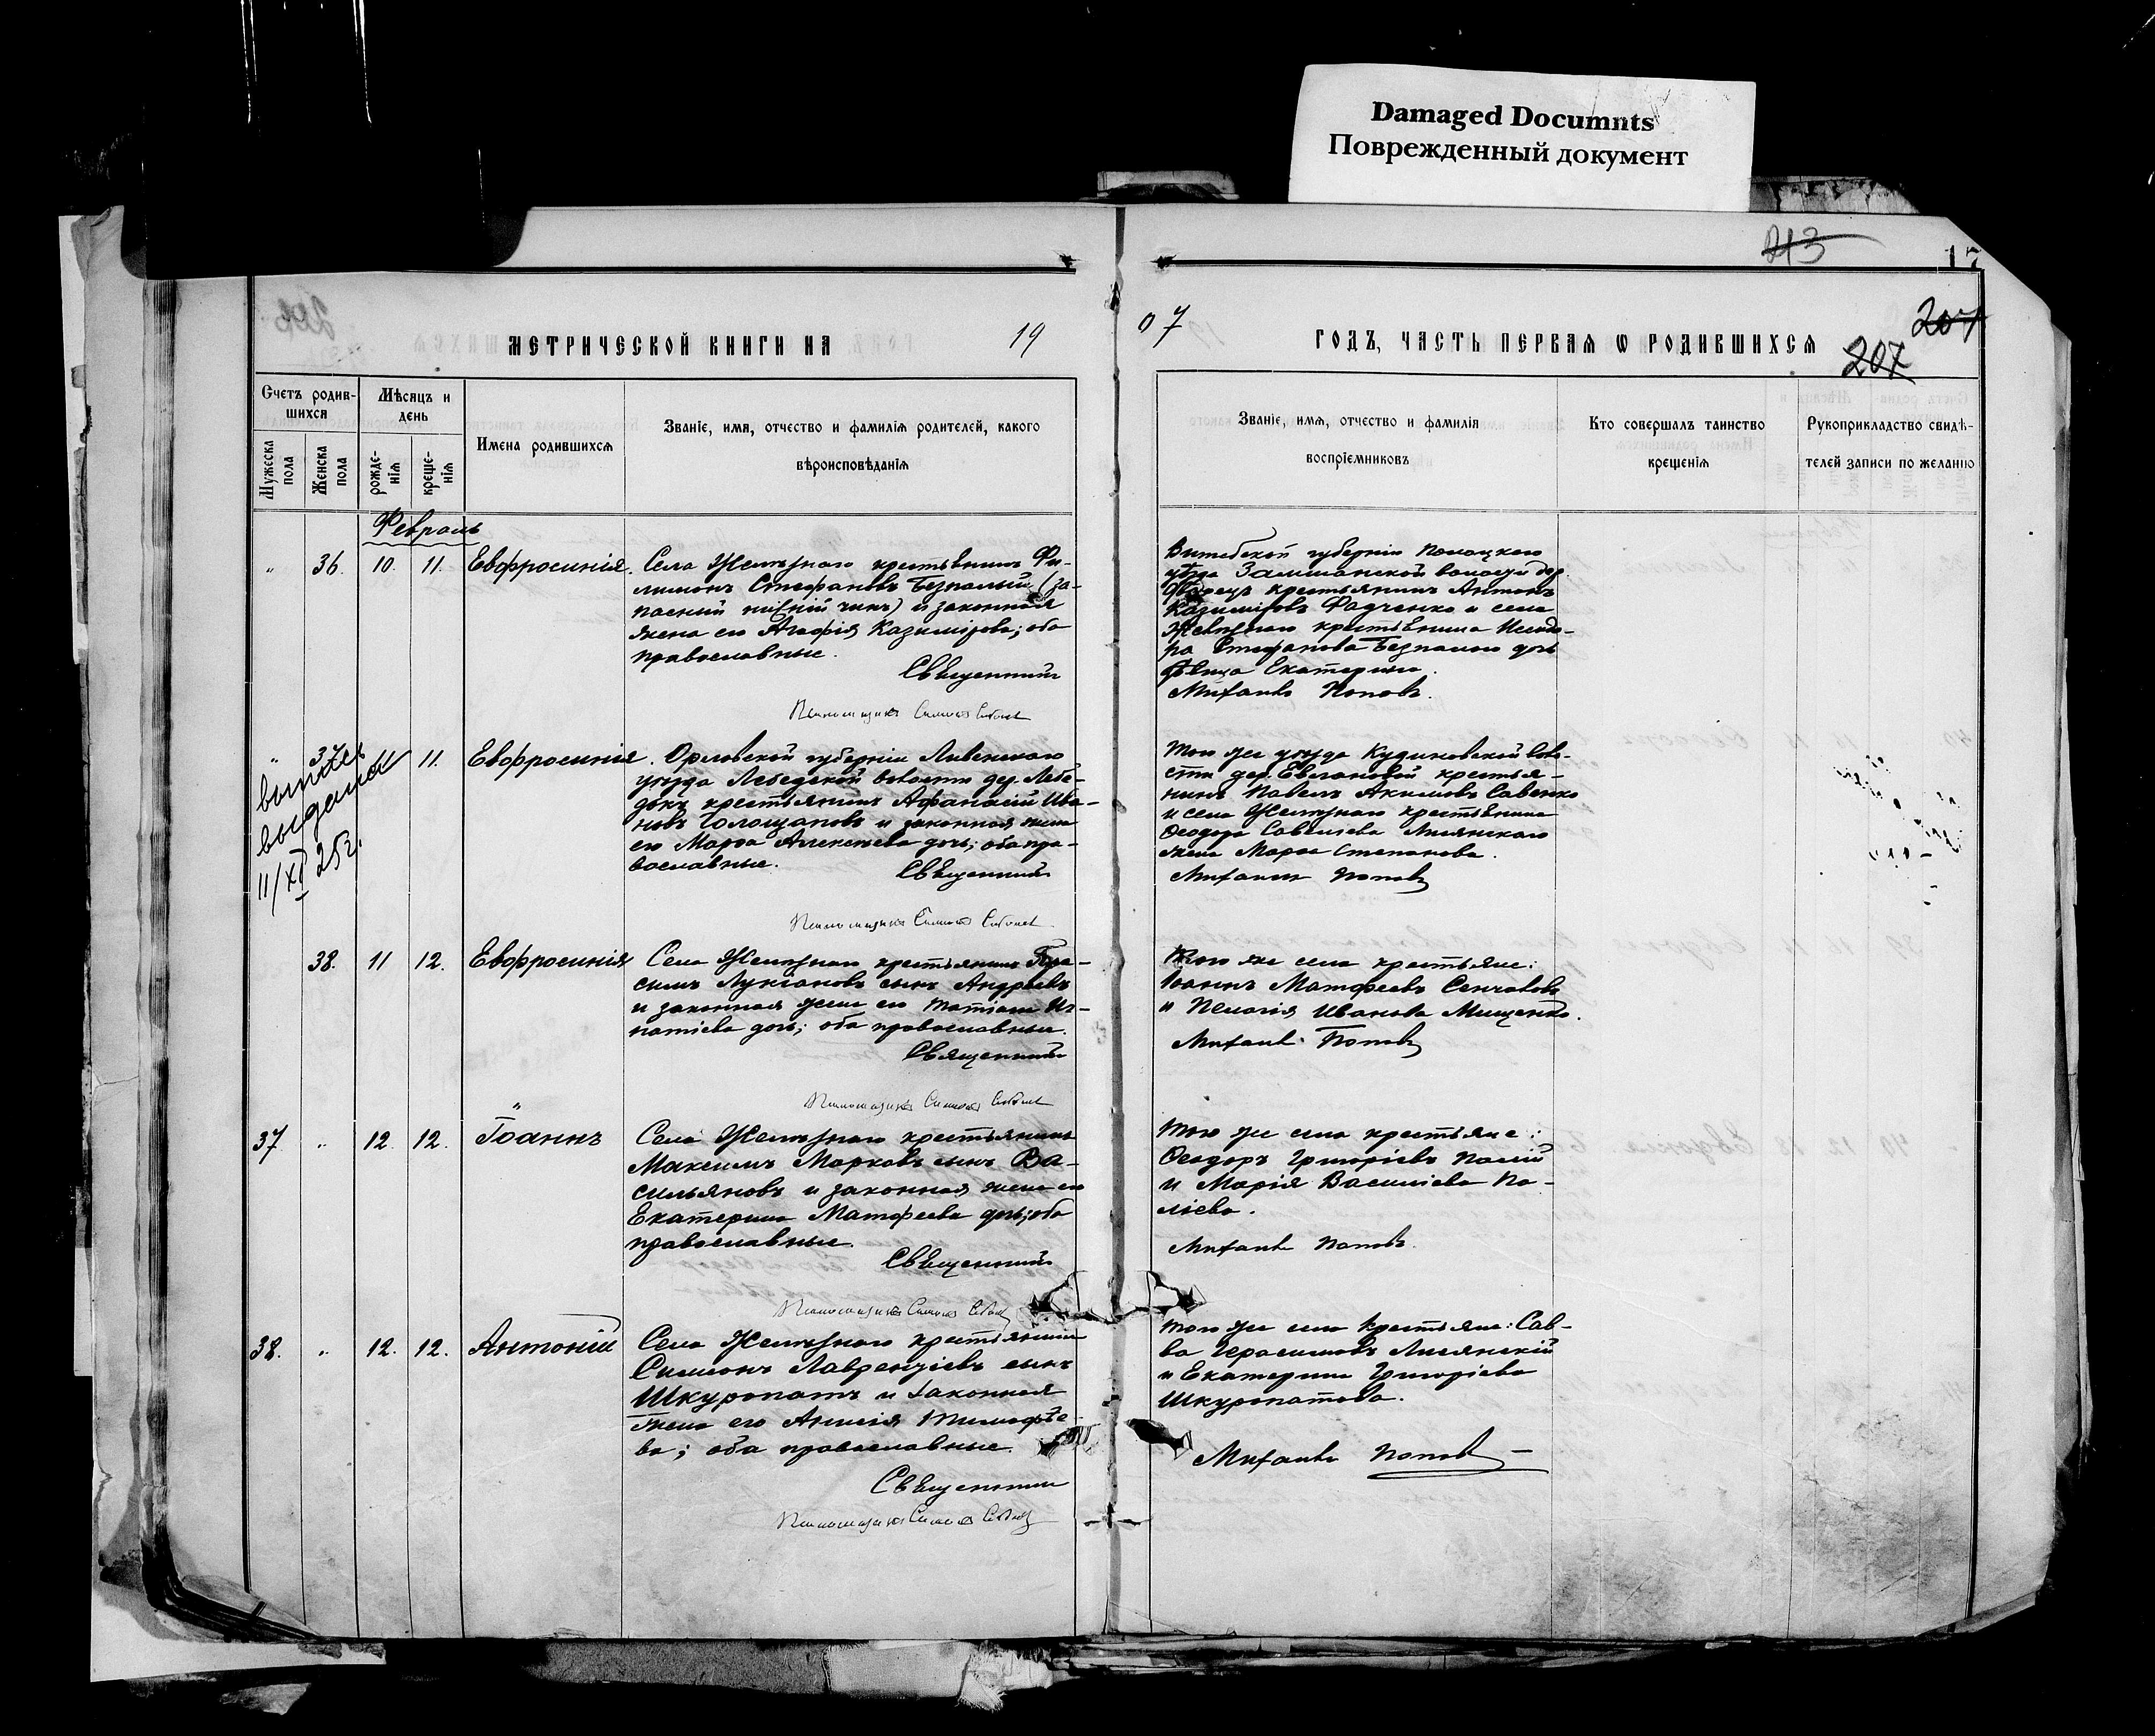 Damaged Documnts
Поврежденный документ
213
17
207
207
МЕТРИЧЕСКОЙ КНИГИ НА 19
07 ГОДЪ, ЧАСТЬ ПЕРВАЯ Ѡ РОДИВШИХСЯ
Счетъ родив-
шихся
Мужеска пола
Женска пола
Мѣсяцъ и
день
рожде-
нія
креще-
нія
Имена родившихся
Званіе, имя, отчество и фамилія родителей, какого
вѣроисповѣданія
Званіе, имя, отчество и фамилія
воспріемниковъ
Кто совершалъ таинство
крещенія
Рукоприкладство свидѣ-
телей записи по желанію
Февраль
" 36. 10. 11. Евфросинія.
Села Желѣзнаго крестьянинъ Фи-
лимонъ Стефановъ Безпалый (за-
пасный нижній чинъ) и законная
жена его Агафія Казимірова; оба
православные.
Священникъ
Псаломщикъ Симеонъ
Витебской губерніи Полоцкаго
уѣзда волости дер.
Дворецъ крестьянинъ Антонъ
Казиміровъ Фадченко и села
Желѣзнаго крестьянина Исидо-
ра Стефанова Безпалаго дочь
дѣвица Екатерина.
Михаилъ Поповъ.
" 37 11 11. Евфросинія.
выпись
выдана
11/XI 25г.
Орловской губерніи Ливенскаго
уѣзда Лебедской волости дер. Лебе-
докъ крестьянинъ Афанасій Ива-
новъ Голощаповъ и законная жена
его Марѳа Алексѣева дочь; оба пра-
вославные.
Священникъ
Псаломщикъ Симеонъ
Того же уѣзда Кудиновской воло-
сти дер. Евлановой крестья-
нинъ Павелъ Акимовъ Савенко
и села Желѣзнаго крестьянина
Ѳеодора Савеліева Лисянскаго
жена Марѳа Степанова.
Михаилъ Поповъ
38. 11 12. Евфросинія
Села Желѣзнаго крестьянинъ Гера-
симъ Лукіановъ сынъ Андреевъ
и законная жена его Татіана Иг-
натіева дочь; оба православные.
Священникъ
Псаломщикъ Симеонъ
Того же села крестьяне:
Іоаннъ Матфеевъ Сенчаковъ
и Пелагія Иванова Мищенко.
Михаилъ Поповъ
37. " 12. 12. Іоаннъ
Села Желѣзнаго крестьянинъ
Максимъ Марковъ сынъ Ва-
сильяновъ и законная жена его
Екатерина Матфеева дочь; оба
православные.
Священникъ
Псаломщикъ Симеонъ
Того же села крестьяне:
Ѳеодоръ Григоріевъ Палій
и Марія Василіева Па-
ліева.
Михаилъ Поповъ.
38. " 12. 12. Антоній
Села Желѣзнаго крестьянинъ
Симеонъ Лаврентіевъ сынъ
Шкуропатъ и законная
жена его Анисія Тимофѣе-
ва; оба православные.
Священникъ
Псаломщикъ Симеонъ
Того же села крестьяне: Сав-
ва Герасимовъ Лисянскій
и Екатерина Григоріева
Шкуропатова.
Михаилъ Поповъ